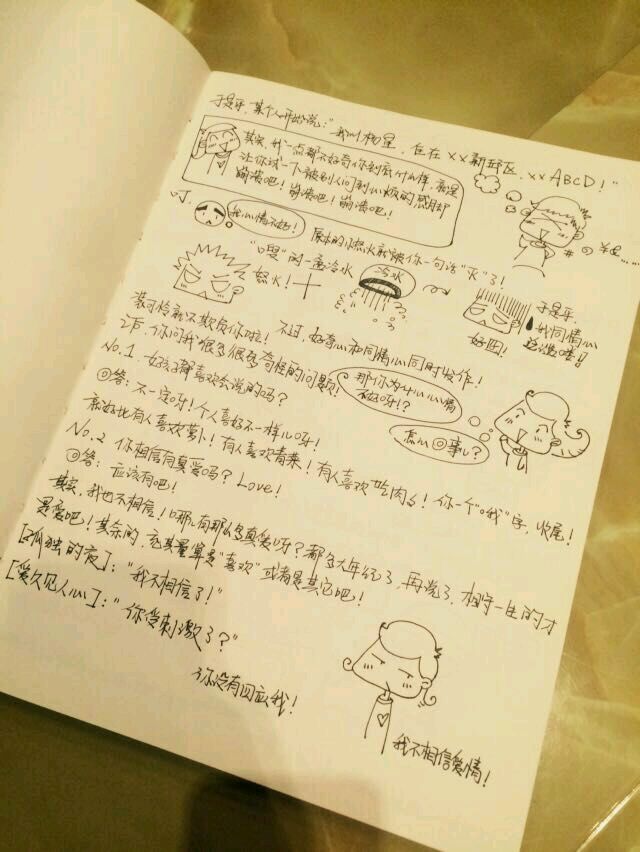 于是乎，某个人开始说："我叫杨星，住在××新邱区，××ABCD！"
其实，我一点都不好奇你到底什么样，就是
让你试一下被别人问到心烦的感觉
崩溃吧！崩溃吧！崩溃吧！
哎，
我心情不好！
原本的怒火就被你一句话"灭"了！
"嗖"的一盘冷水
怒火！
冷水
好囧！
于是乎，
我同情心
泛滥喽！
装可怜就不欺负你啦！ 不过，好奇心和同情心同时发作！
之后，你问我很多很多奇怪的问题！
那你为什么心情
不好呀！？
怎么回事儿？
No.1 女孩子都喜欢会说的吗？
答：不一定呀！个人喜好不一样儿呀！
就好比有人喜欢萝卜！有人喜欢青菜！有人喜欢吃肉肉！你一个"哦"字，收尾！
No.2 你相信有真爱吗？Love！
答：应该有吧！
其实，我也不相信！哪儿有那么多真爱呀？都多大年纪了，再说了，相守一生的才
是爱吧！其余的，充其量算是"喜欢"或者是其它吧！
[孤独的夜]："我不相信了！"
[爱久见人心]："你受刺激了？"
你没有回应我！
我不相信爱情！